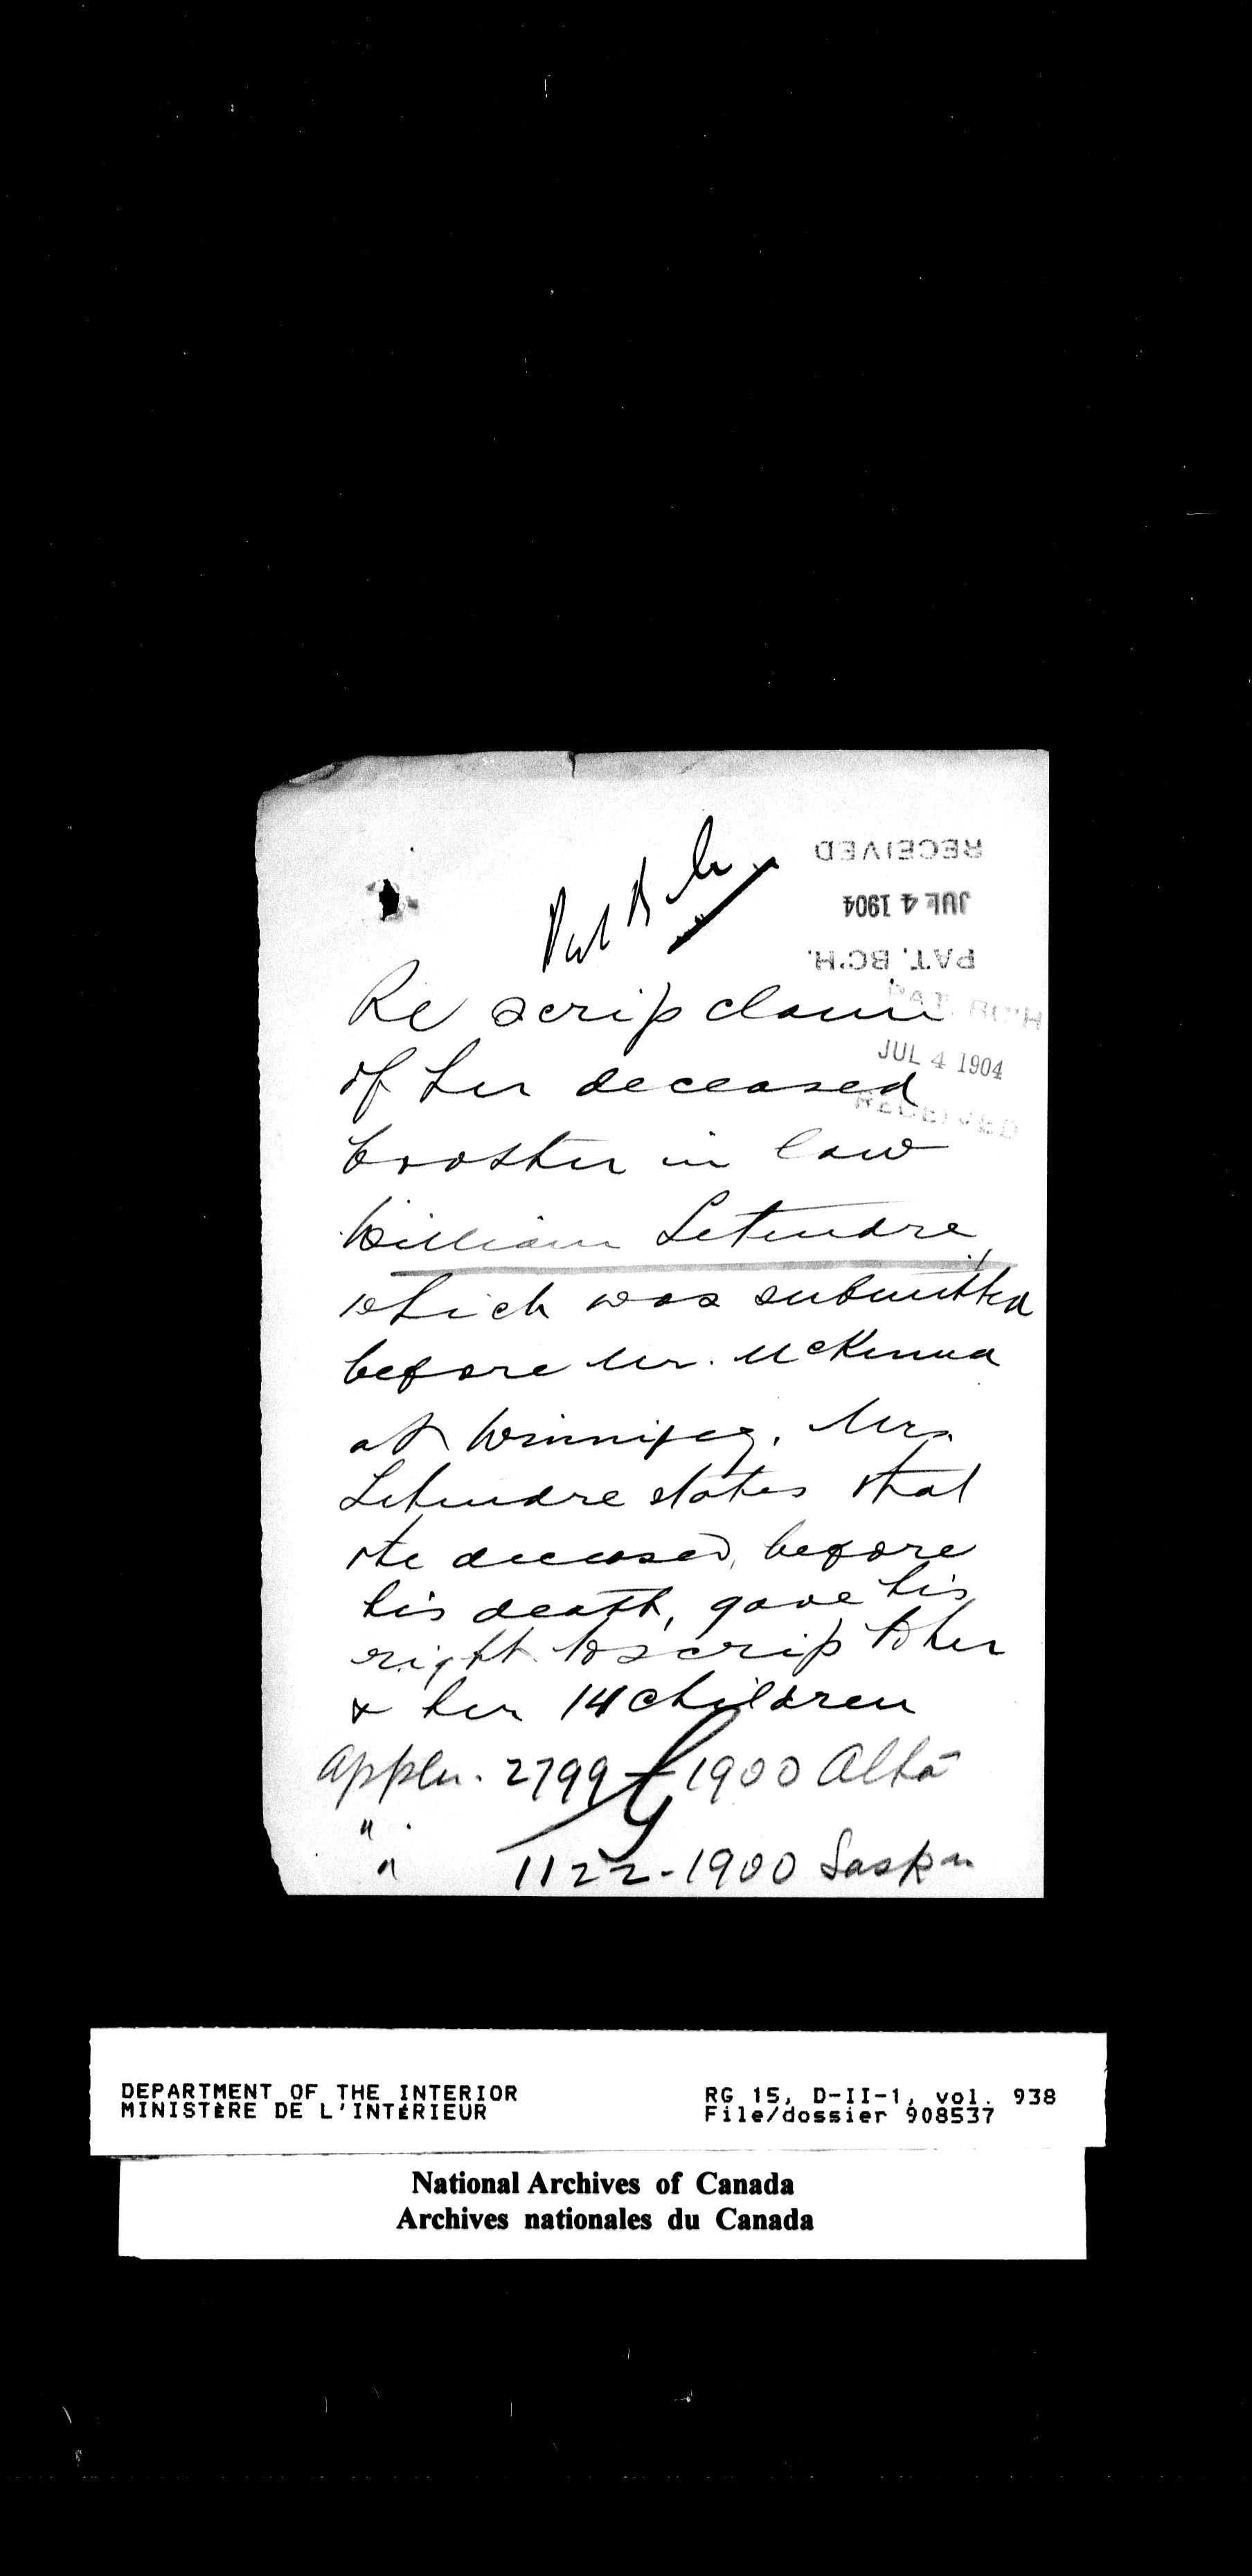 RECEIVED
JUL 4 1904
PAT. BC'H.
Re scrip claim
PAT. BC'H
of her deceased
JUL 4 1904
RECEIVED
brother in law
William Letendre,
which was submitted
before Mr. McKenna
at Winnipeg. Mrs.
Letendre states that
the deceased, before
his death, gave his
right to scrip to her
& her 14 children
Appln. 2799 1900 Alta
" "
1122-1900 Saskn
DEPARTMENT OF THE INTERIOR
MINISTÈRE DE L'INTÉRIEUR
RG 15, D-II-1, vol. 938
File/dossier 908537
National Archives of Canada
Archives nationales du Canada